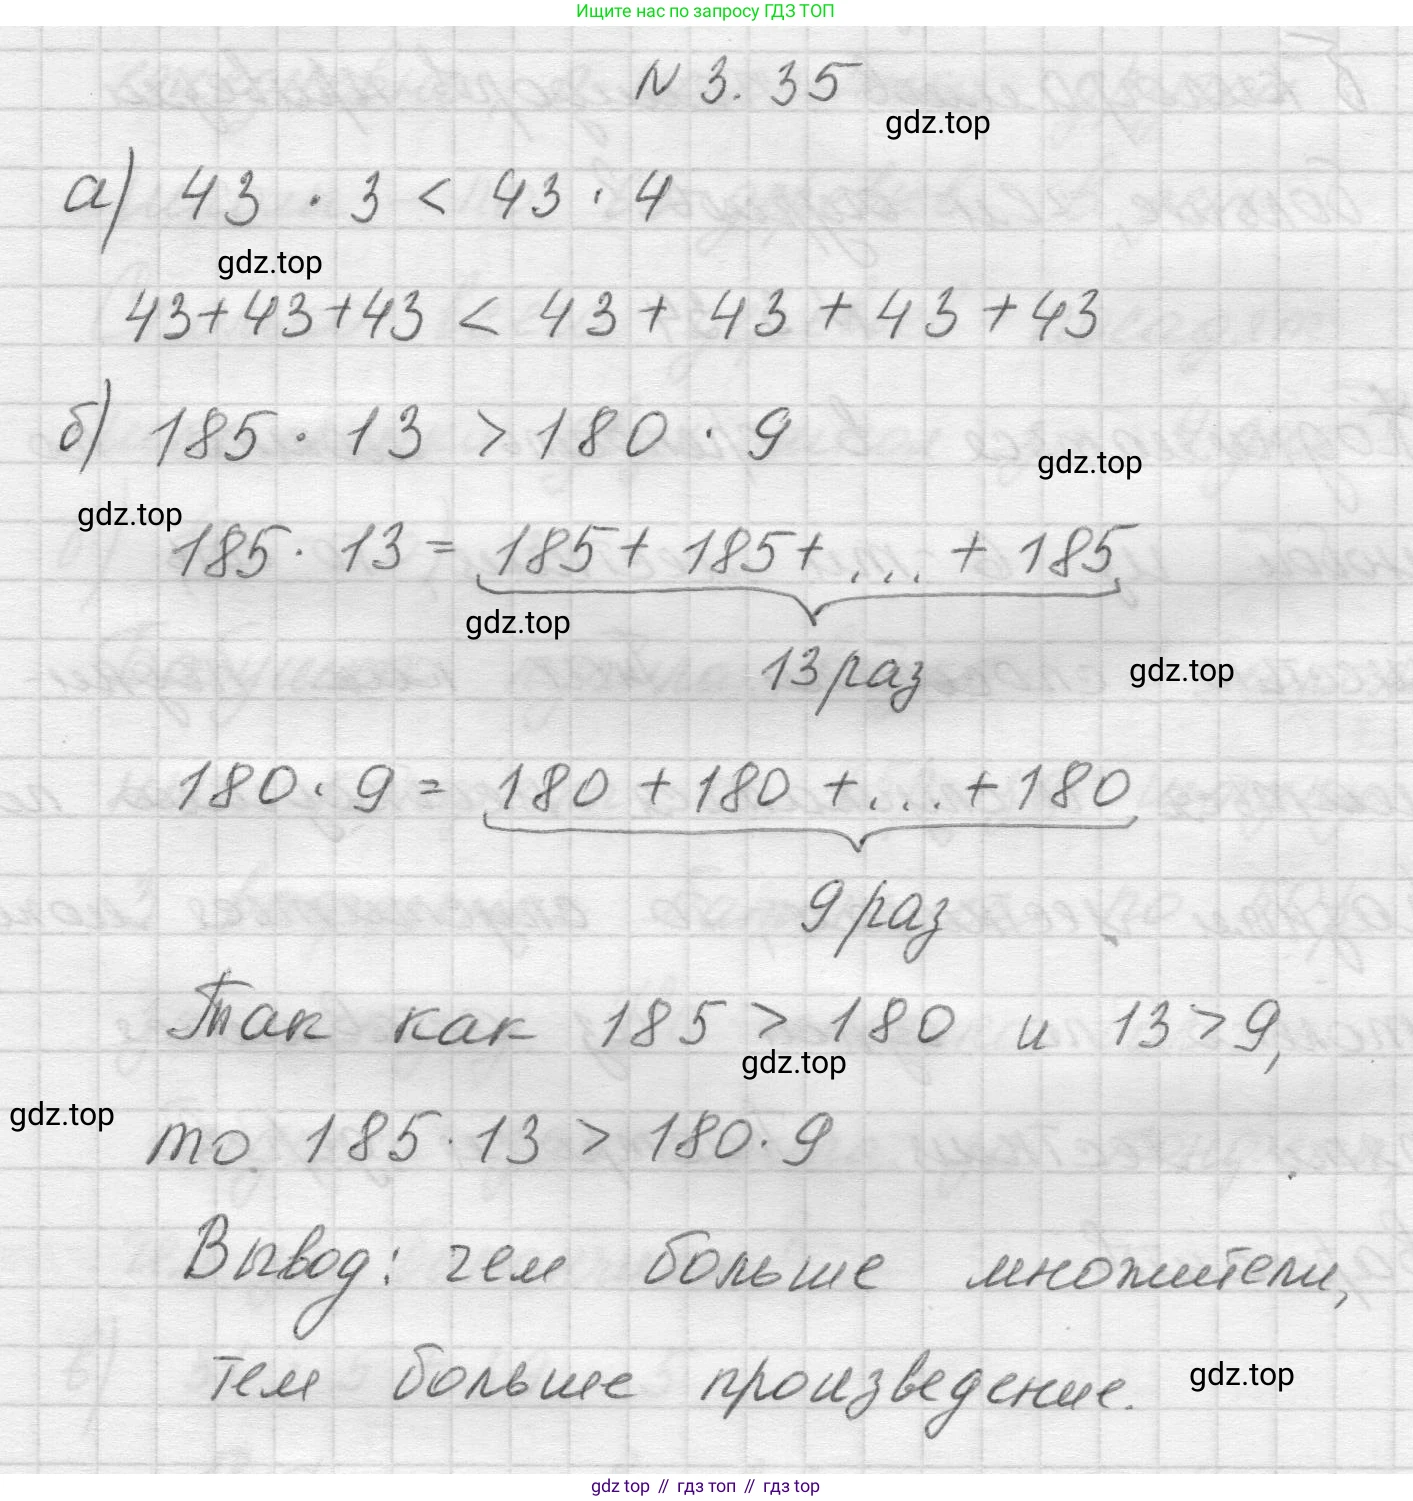 Ищите нас по запросу ГДЗ ТОП
N 3.35
gdz.top
а) 43 · 3 < 43 · 4
gdz.top
43+43+43 < 43+ 43 + 43 +43
б) 185 · 13 > 180 · 9
gdz.top
gdz.top
185 · 13 = 185+ 185+ ... + 185
gdz.top
13 раз
gdz.top
180 · 9 = 180 + 180 + ... + 180
9 раз
Так как 185 > 180 и 13 > 9,
gdz.top
gdz.top
то 185 · 13 > 180 · 9
Вывод: чем больше множители,
тем больше произведение.
gdz.top
gdz top // гдз топ // gdz top